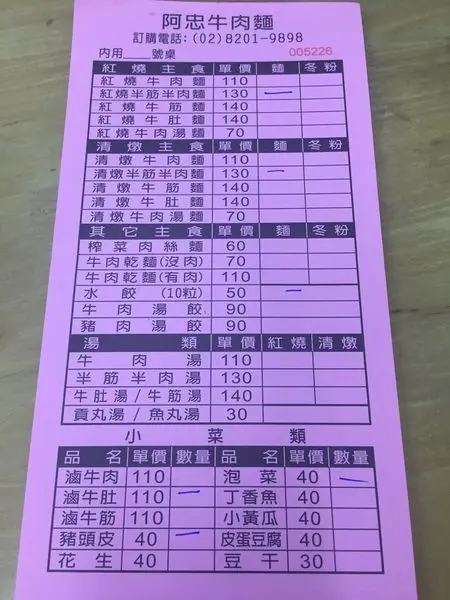 阿忠牛肉麵
訂購電話:(02)8201-9898
內用 號桌 005226
紅燒主食 單價 麵 冬粉
紅燒牛肉麵 110
紅燒半筋半肉麵 130 一
紅燒牛筋麵 140
紅燒牛肚麵 140
紅燒牛肉湯麵 70
清燉主食 單價 麵 冬粉
清燉牛肉麵 110
清燉半筋半肉麵 130 一
清燉牛筋麵 140
清燉牛肚麵 140
清燉牛肉湯麵 70
其它主食 單價 麵 冬粉
榨菜肉絲麵 60
牛肉乾麵(沒肉) 70
牛肉乾麵(有肉) 110
水餃 (10粒) 50 一
牛肉湯餃 90
豬肉湯餃 90
湯類 單價 紅燒 清燉
牛肉湯 110
半筋半肉湯 130
牛肚湯/牛筋湯 140
貢丸湯/魚丸湯 30
小菜類
品名 單價 數量 品名 單價 數量
滷牛肉 110 泡菜 40 一
滷牛肚 110 一 丁香魚 40
滷牛筋 110 小黃瓜 40
豬頭皮 40 一 皮蛋豆腐 40
花生 40 豆干 30